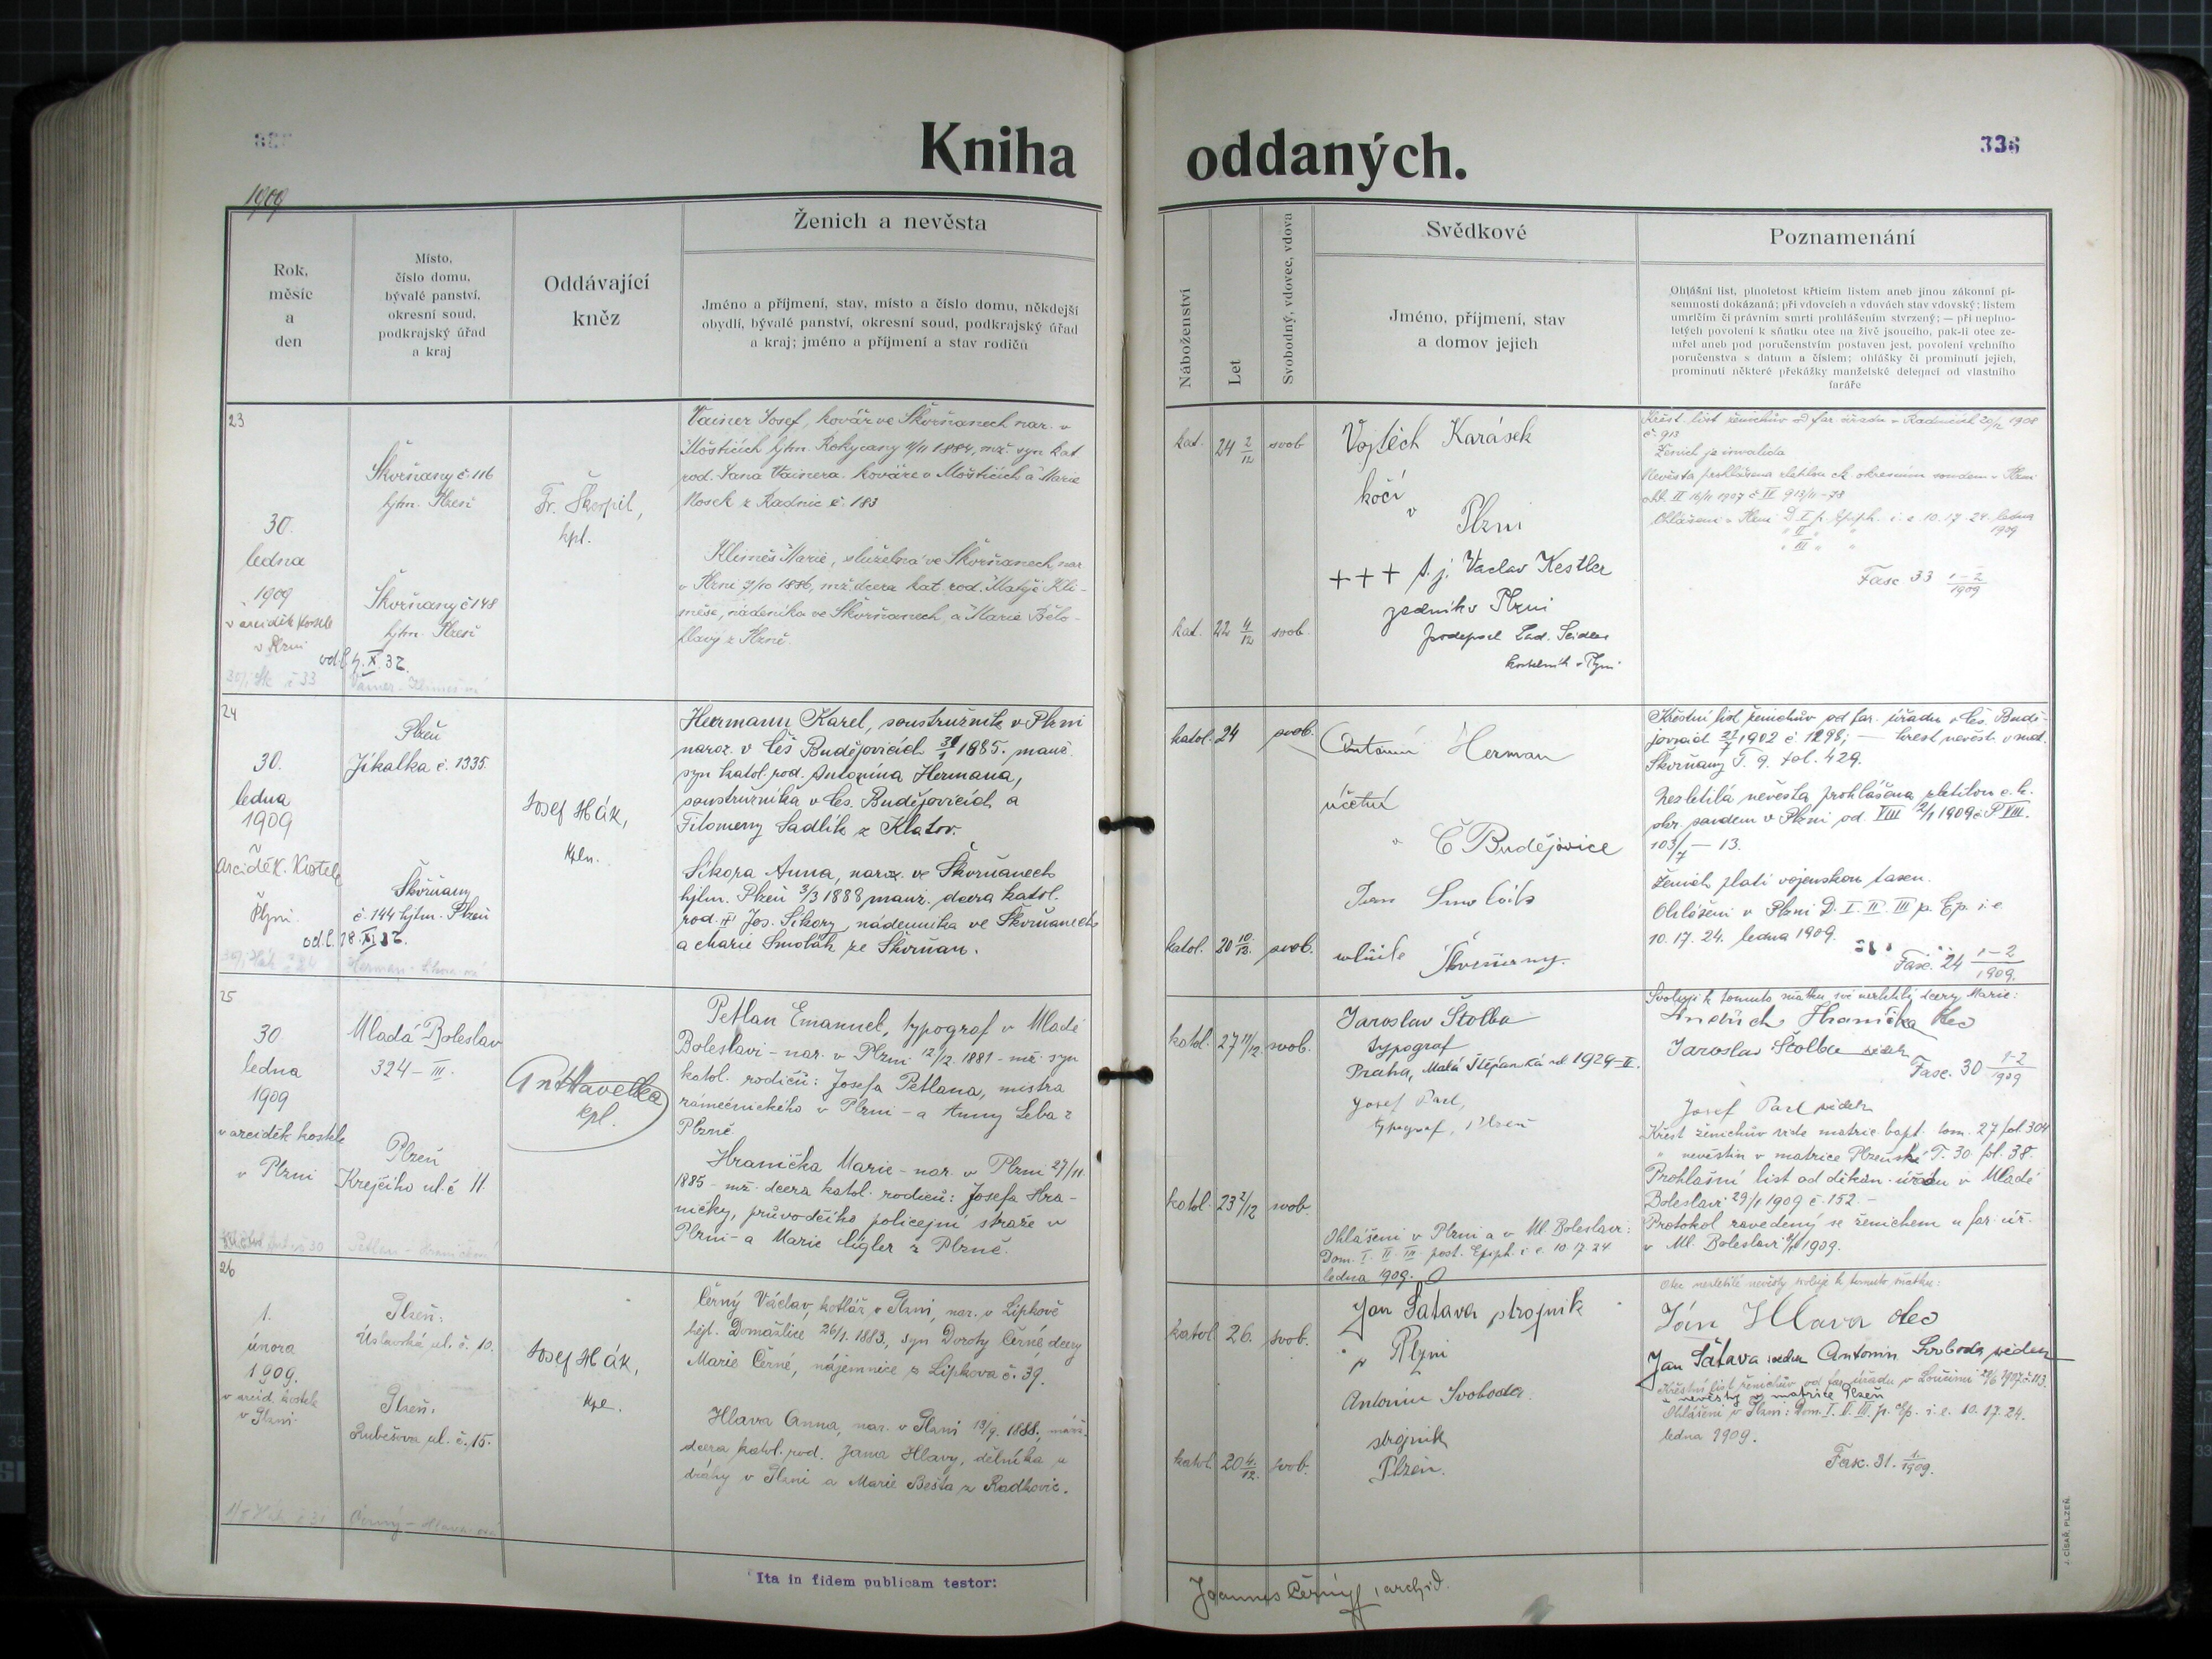 Kniha oddaných.
336
1909
Rok,
měsíc
a
den
Místo,
číslo domu,
bývalé panství,
okresní soud,
podkrajský úřad
a kraj
Oddávající
kněz
Ženich a nevěsta
Jméno a příjmení, stav, místo a číslo domu, někdejší
obydlí, bývalé panství, okresní soud, podkrajský úřad
a kraj; jméno a příjmení a stav rodičů
Náboženství
Let
Svobodný, vdovec, vdova
Svědkové
Jméno, příjmení, stav
a domov jejich
Poznamenání
Ohlášní list, plnoletost křticím listem aneb jinou zákonní pí-
semností dokázaná; při vdovcích a vdovách stav vdovský; listem
umrlčím či právním smrti prohlášením stvrzený; — při neplno-
letých povolení k sňatku otce na živě jsoucího, pak-li otec ze-
mřel aneb pod poručenstvím postaven jest, povolení vrchního
poručenstva s datum a číslem; ohlášky či prominutí jejich,
prominutí některé překážky manželské delegací od vlastního
faráře
23
30.
ledna
1909
v arciděk. kostele
v Plzni
Škvrňany č. 116
hjtm. Plzeň
Škvrňany č 148
hjtm. Plzeň
odl. 7. X. 32.
Fr. Škorpil,
kpl.
Vainer Josef, kovář ve Škvrňanech nar. v
Moštičích hjtm. Rokycany 4/11 1884, mž. syn kat.
rod. Jana Vainera, kováře v Moštičích a Marie
Nosek z Radnic č. 183
Klimeš Marie, služebná ve Škvrňanech, nar.
v Plzni 7/10 1886, mž. dcera kat. rod. Matěje Kli-
meše, nádeníka ve Škvrňanech, a Marie Bělo-
hlavý z Plzně.
kat. 24 2/12 svob.
kat. 22 4/12 svob.
Vojtěch Karásek
kočí
v
Plzni
+++ t. j. Vaclav Kestler
zedník v Plzni
podepsal Lad. Seidler
kostelník v Plzni
Křest. list ženichův od far. úřadu v Radnicích 20/12 1908
č. 913
Ženich je invalida
Nevěsta prohlášena zletilou ck. okresním soudem v Plzni
Ohlášeni v Plzni D. I p. Epiph. i. e. 10. 17. 24. ledna
1909
" II " "
" III " "
Fasc 33 1-2/1909
24
30.
ledna
1909
arciděk. Kostele
Plzni
Plzeň
Jíkalka č. 1335.
Škvrňany
č. 144 hjtm. Plzeň
odl. 18. XI 32.
Josef Hák,
kpln.
Hermann Karel, soustružník v Plzni
naroz. v Čes Budějovicích 1885. manž.
syn katol. rod. Antonína Hermana,
soustružníka v Čes. Budějovicích a
Filomeny Sadlík z Klatov.
Sikora Anna, naroz. ve Škvrňanech
hjtm. Plzeň 3/3 1888 manž. dcera katol.
rod. Jos. Sikory, nádenníka ve Škvrňanech
a Marie Smolák ze Škvrňan.
katol. 24 svob.
katol. 20 10/12. svob.
Antonín Herman
účetní
v
Č Budějovice
Škvrňany.
Křestní list ženichův od far. úřadu v Čes. Budě-
jovicích 1902 č 1298; — křest nevěsti v mat.
Škvrňany T. 9. fol. 429.
Nezletilá nevěsta prohlášena zletilou c. k.
okr. soudem v Plzni od. VIII 1909 č P VIII.
103/7 — 13.
Ženich platí vojenskou taxu.
Ohlášeni v Plzni D. I. II. III p. Ep. i. e
10. 17. 24. ledna 1909.
Fasc. 24 1-2/1909.
25
30
ledna
1909
v arciděk kostele
v Plzni
Mladá Boleslav
324 – III.
Plzeň
Krejčího ul. č 11.
Ant Havelka
kpl.
Petlan Emanuel, typograf v Mladé
Boleslavi – nar. v Plzni 12/12. 1881 – mž. syn
katol. rodičů: Josefa Petlana, mistra
rámečnického v Plzni – a Anny Leba z
Plzně
Hranička Marie – nar. v Plzni 27/11.
1885 – mž. dcera katol. rodičů: Josefa Hra-
ničky, průvodčího policejní stráže v
Plzni – a Marie Cígler z Plzně.
katol. 27 11/12. svob.
katol. 23 2/12 svob.
Jaroslav Štolba
typograf
Praha, Malá Štěpánská ul 1929–II.
Josef Parl,
typograf, Plzeň
Ohlášeni v Plzni a v Ml. Boleslavi:
Dom. I. II. III. post. Epiph. i. e. 10. 17. 24
ledna 1909.
Svoluji k tomuto sňatku své nezletilé dcery Marie:
Hranička otec
Jaroslav Štolba svědek
Fasc. 30 1-2/1909
Josef Parl svědek
Křest ženichův vide matric. bapt. tom. 27 fol. 304
" nevěstin v matrice Plzeňské T. 30. fol. 38.
Prohlašní list od děkan. úřadu v Mladé
Boleslavi 29/1 1909 č. 152. –
Protokol zavedený se ženichem u far. úř.
v Ml. Boleslavi 1909.
26
1.
února
1909.
v arcid. kostele
v Plzni.
Plzeň:
Úslavská ul. č. 10.
Plzeň,
Lubešova ul. č. 15.
Josef Hák,
kpl.
Černý Václav, kotlář v Plzni, nar. v Lipkově
hejt. Domažlice 26/1. 1883, syn Doroty Černé, dcery
Marie Černé, nájemnice z Lipkova č. 39.
Hlava Anna, nar. v Plzni 13/9. 1888, manž.
dcera katol. rod. Jana Hlavy, dělníka u
dráhy v Plzni a Marie Bešta z Radkovic.
katol 26. svob.
katol 20 4/12. svob.
Jan Šatava strojník
v Plzni
Antonín Svoboda
strojník
Plzeň.
Otec nezletilé nevěsty svoluje k tomuto sňatku:
Ján Hlava otec
Jan Šatava svědek Antonín Svoboda svědek
Křestní list ženichův od far. úřadu v Loučimi 1907 č 113.
" nevěsty v matrice Plzeň
Ohlášeni v Plzni: Dom. I. II. III. p. Ep. i. e. 10. 17. 24.
ledna 1909.
Fasc. 31. 1/1909.
Černý – Hlava
Ita in fidem publicam testor:
Joannes Černý, archid.
J. CÍSAŘ, PLZEŇ.